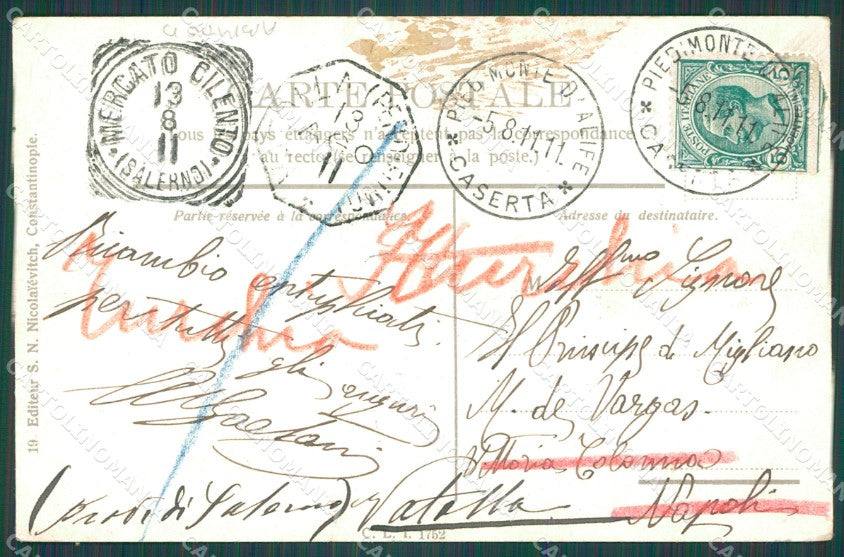 MERCATO CILENTO
13
8
11
(SALERNO)
13
11
PIEDIMONTE D'ALIFE
-5.8.11.11.
* CASERTA *
PIEDIMONTE D'ALIFE
-5.8.11.11.
* CASERTA *
POSTE ITALIANE
CARTE POSTALE
Tous les pays étrangers n'acceptent pas la correspondance
au recto (se renseigner à la poste.)
Partie réservée à la correspondance.
Adresse du destinataire.
19 Editeur S. N. Nicolaïévitch, Constantinople.
Ricambio
per tutti gli auguri
Gaetani
M
Signore
Il Principe di Migliano
M. de Vargas
Vittoria Colonna
Napoli
Vatolla
(Prov. di Salerno)
C. L. I. 1752
CARTOLINOMANIA